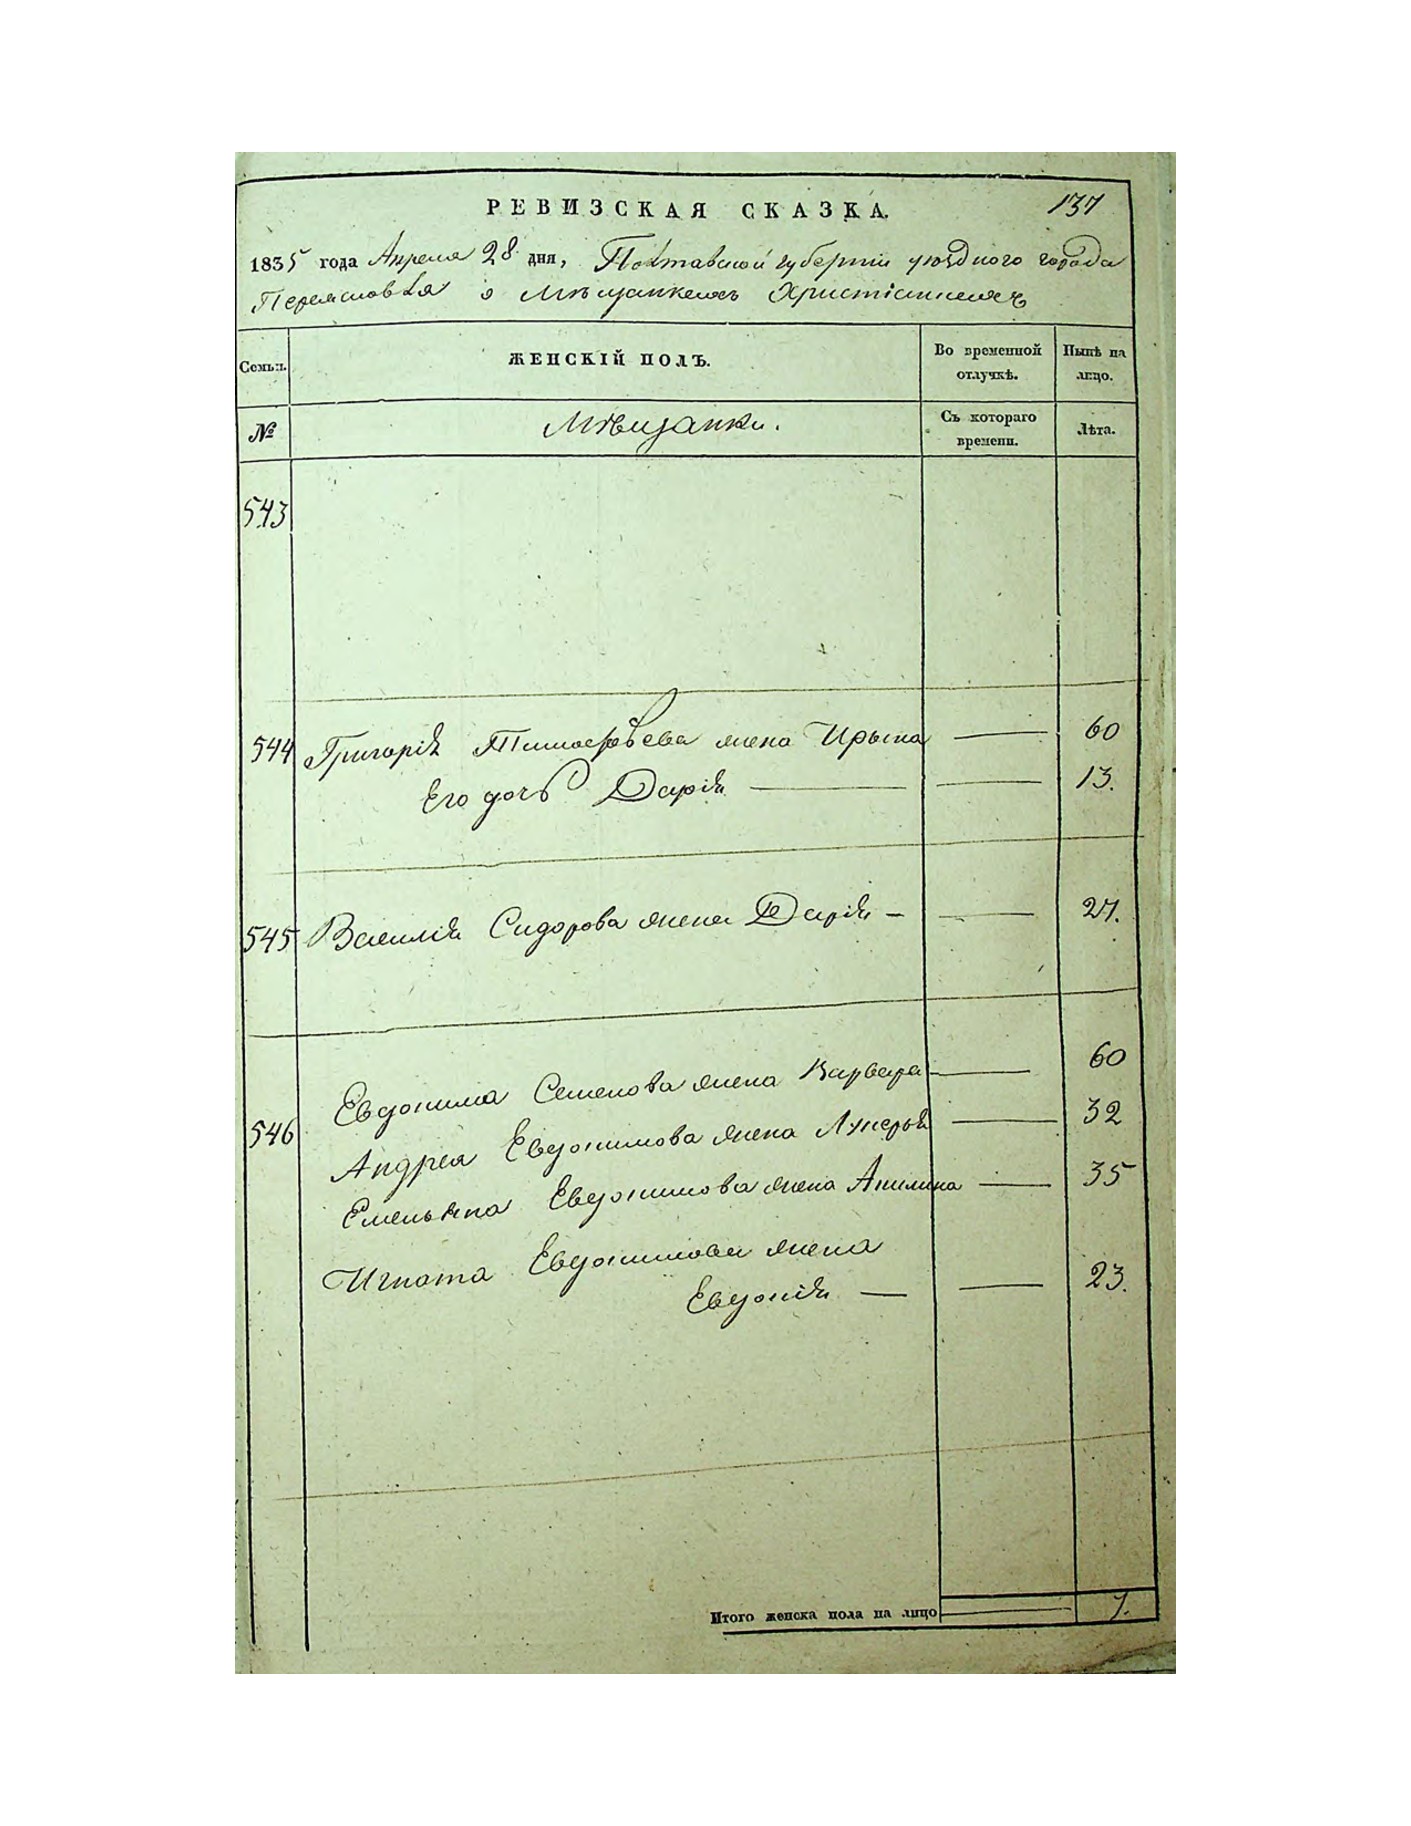 РЕВИЗСКАЯ СКАЗКА.
137
1835 года Апреля 28 дня, Полтавской губерніи уѣздного города
Переяславля о Мѣщанкахъ Христіанкахъ
Семьи.
ЖЕНСКІЙ ПОЛЪ.
Во временной отлучкѣ.
Нынѣ на лицо.
№
Мѣщанки.
Съ котораго времени.
Лѣта.
543
544 Григорія Тимофѣева жена Ирына — 60
Его дочь Дарія — — 13.
545 Василія Сидорова жена Дарія — — 27.
Евдокима Семенова жена Варвара — 60
546 Андрея Евдокимова жена Лукерья — 32
Емельяна Евдокимова жена Акилина — 35
Игната Евдокимова жена
Евдокія — — 23.
Итого женска пола на лицо — 7.